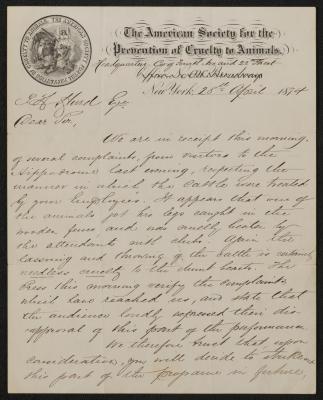 The American Society for the
Prevention of Cruelty to Animals.
Headquarters, Cor of Fourth Ave and 22 Street
New York, 28th April 1874
Hurd Esq
Dear Sir,
We are in receipt this morning
of several complaints, from visitors to the
Hippodrome last evening, respecting the
manner in which the cattle were treated
by your employees. It appears that one of
the animals got his legs caught in the
wooden fence, and was cruelly beaten by
the attendants with clubs. Again the
lassoing and throwing of the cattle is extremely
needless cruelty to the dumb beasts. The
Press this morning verify the complaints
which have reached us, and state that
the audience loudly expressed their dis-
approval of this part of the performance.
We therefore trust that upon
consideration, you will decide to
this part of the programe in future,